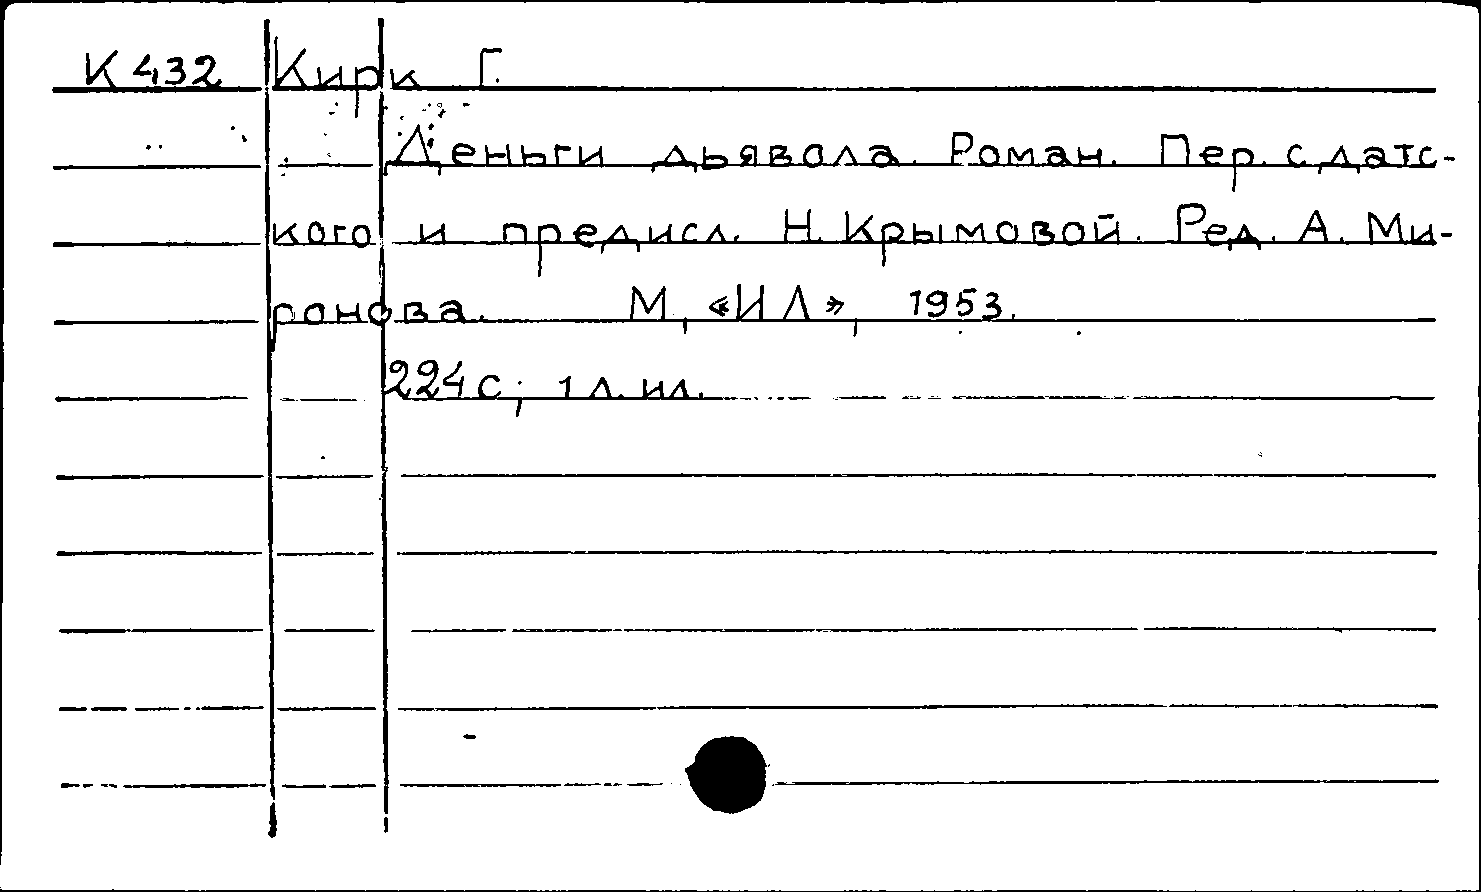 К 432 Кирк Г.
Деньги дьявола. Роман. Пер. с датс-
кого и предисл. Н. Крымовой. Ред. А. Ми-
ронова. М, «ИЛ», 1953.
224 с; 1 л. ил.